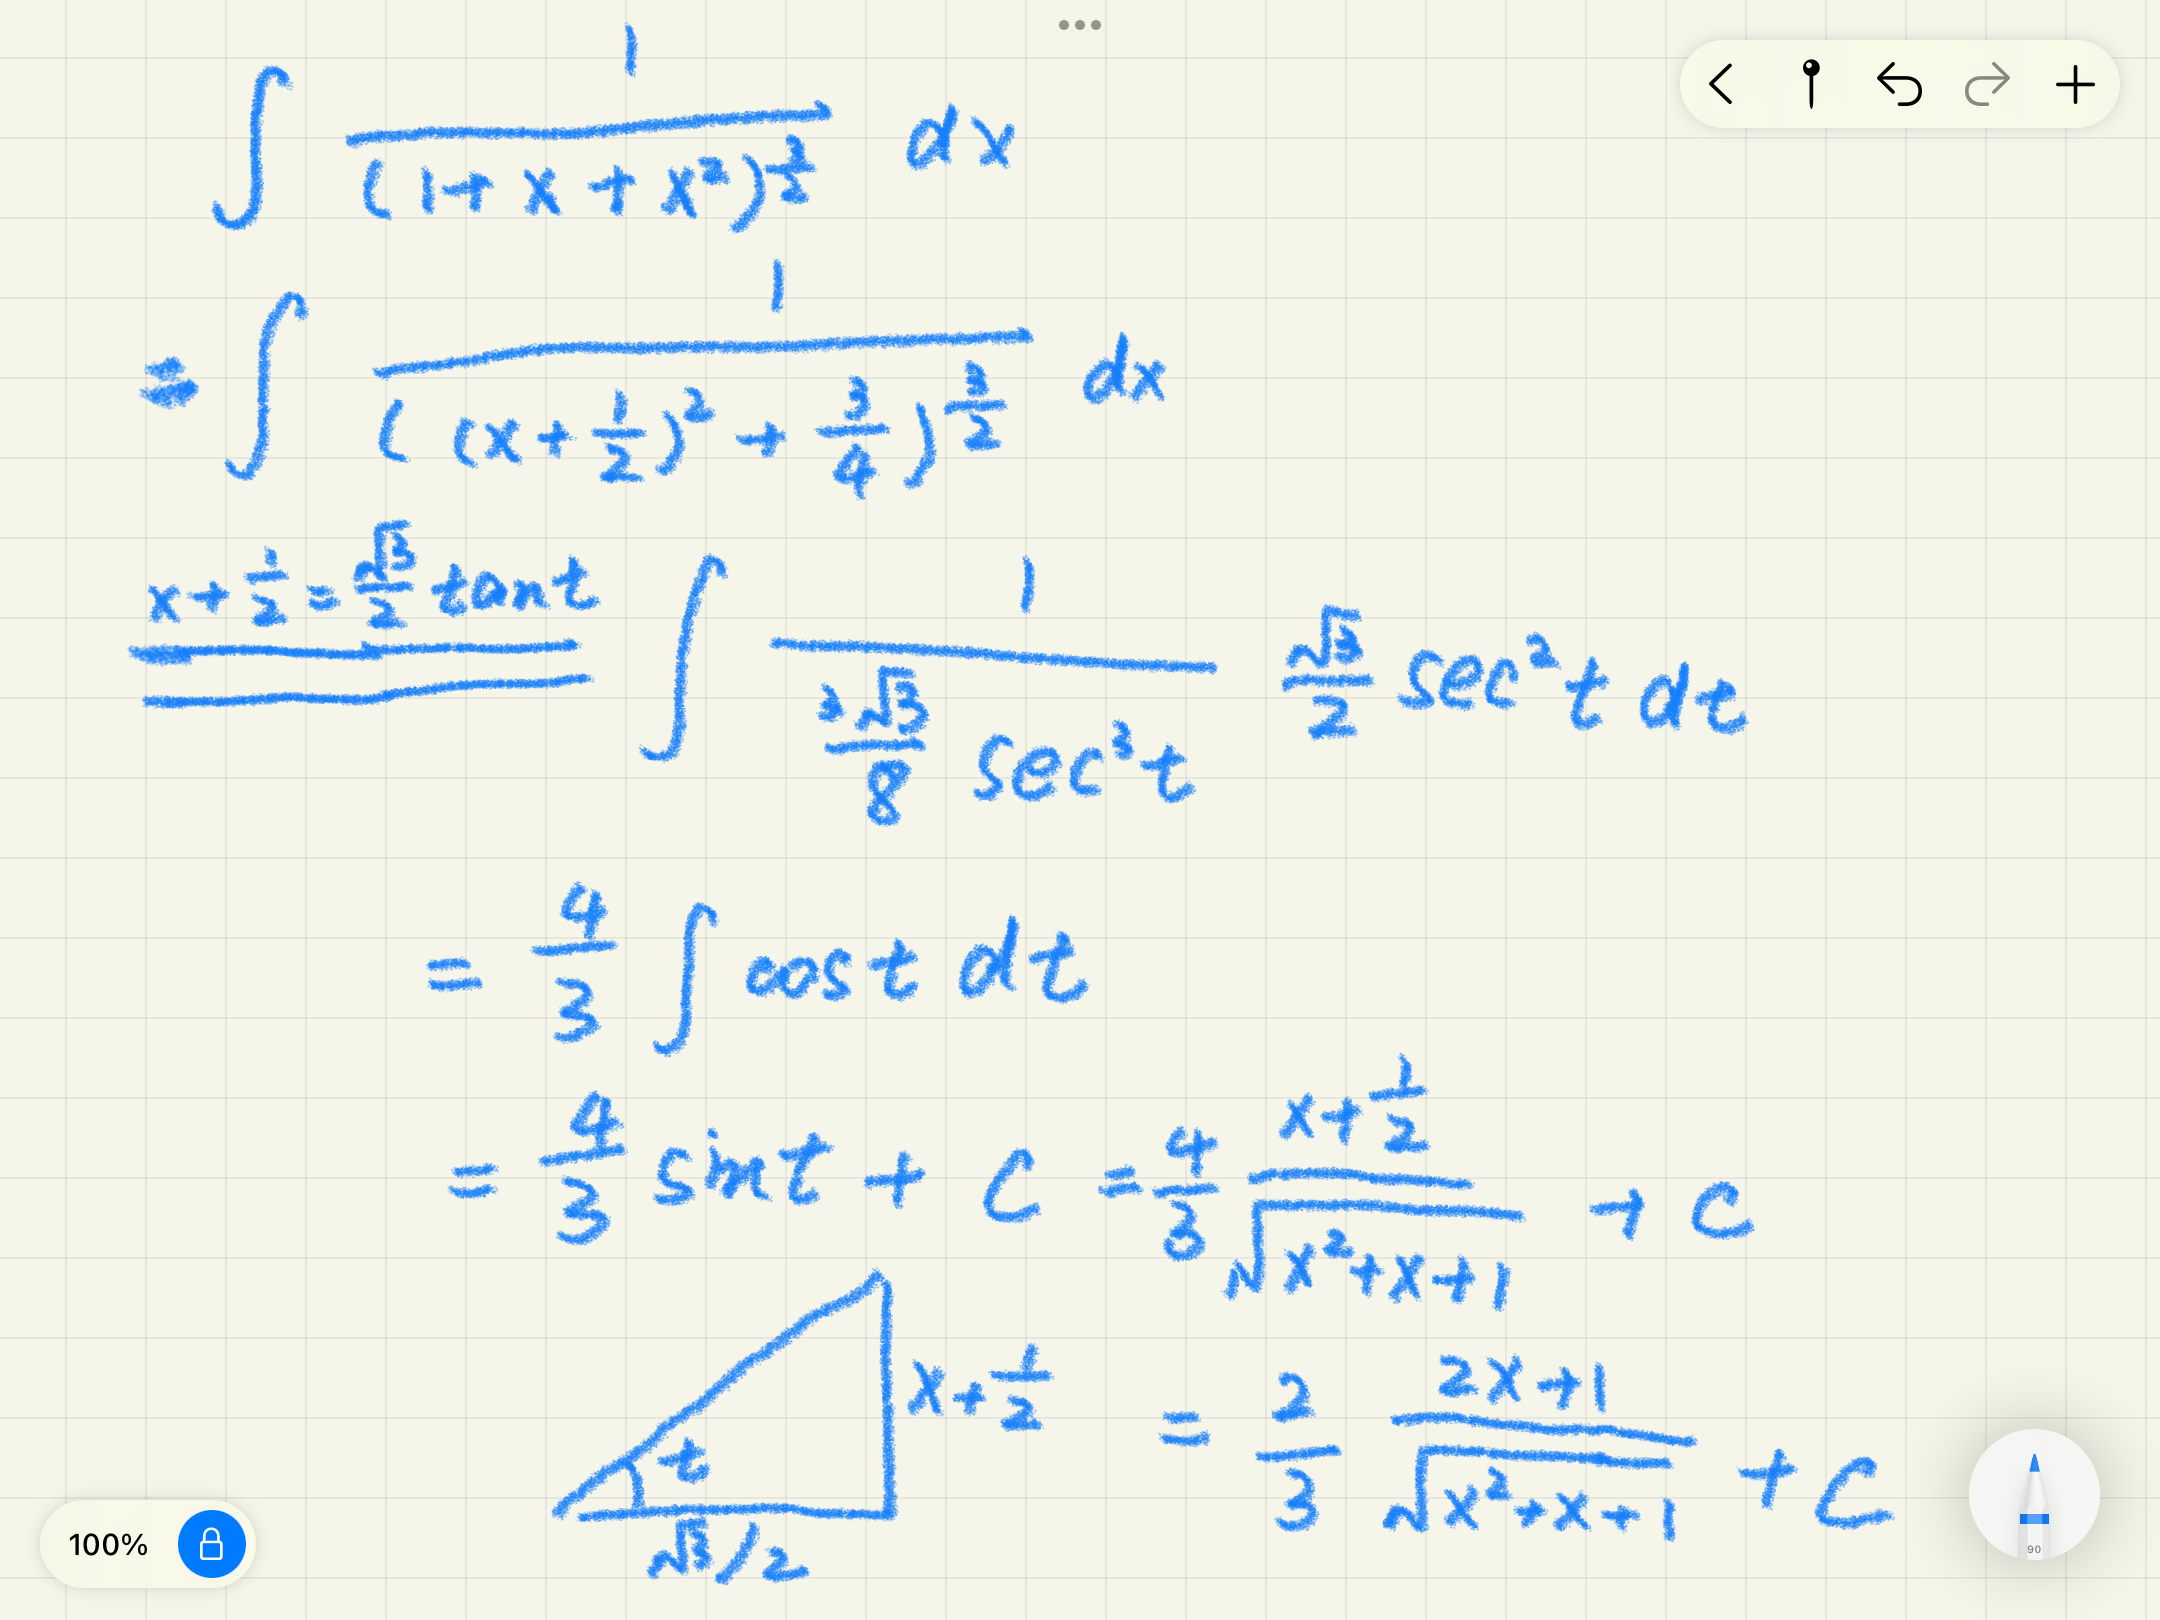 ∫ 1/(1+x+x²)^(3/2) dx
= ∫ 1/((x+1/2)²+3/4)^(3/2) dx
x+1/2=√3/2 tant ∫ 1/(3√3/8 sec³t) √3/2 sec²t dt
= 4/3 ∫ cost dt
= 4/3 sint + C = 4/3 (x+1/2)/√(x²+x+1) + C
t
x+1/2
√3/2
= 2/3 (2x+1)/√(x²+x+1) + C
100%
90